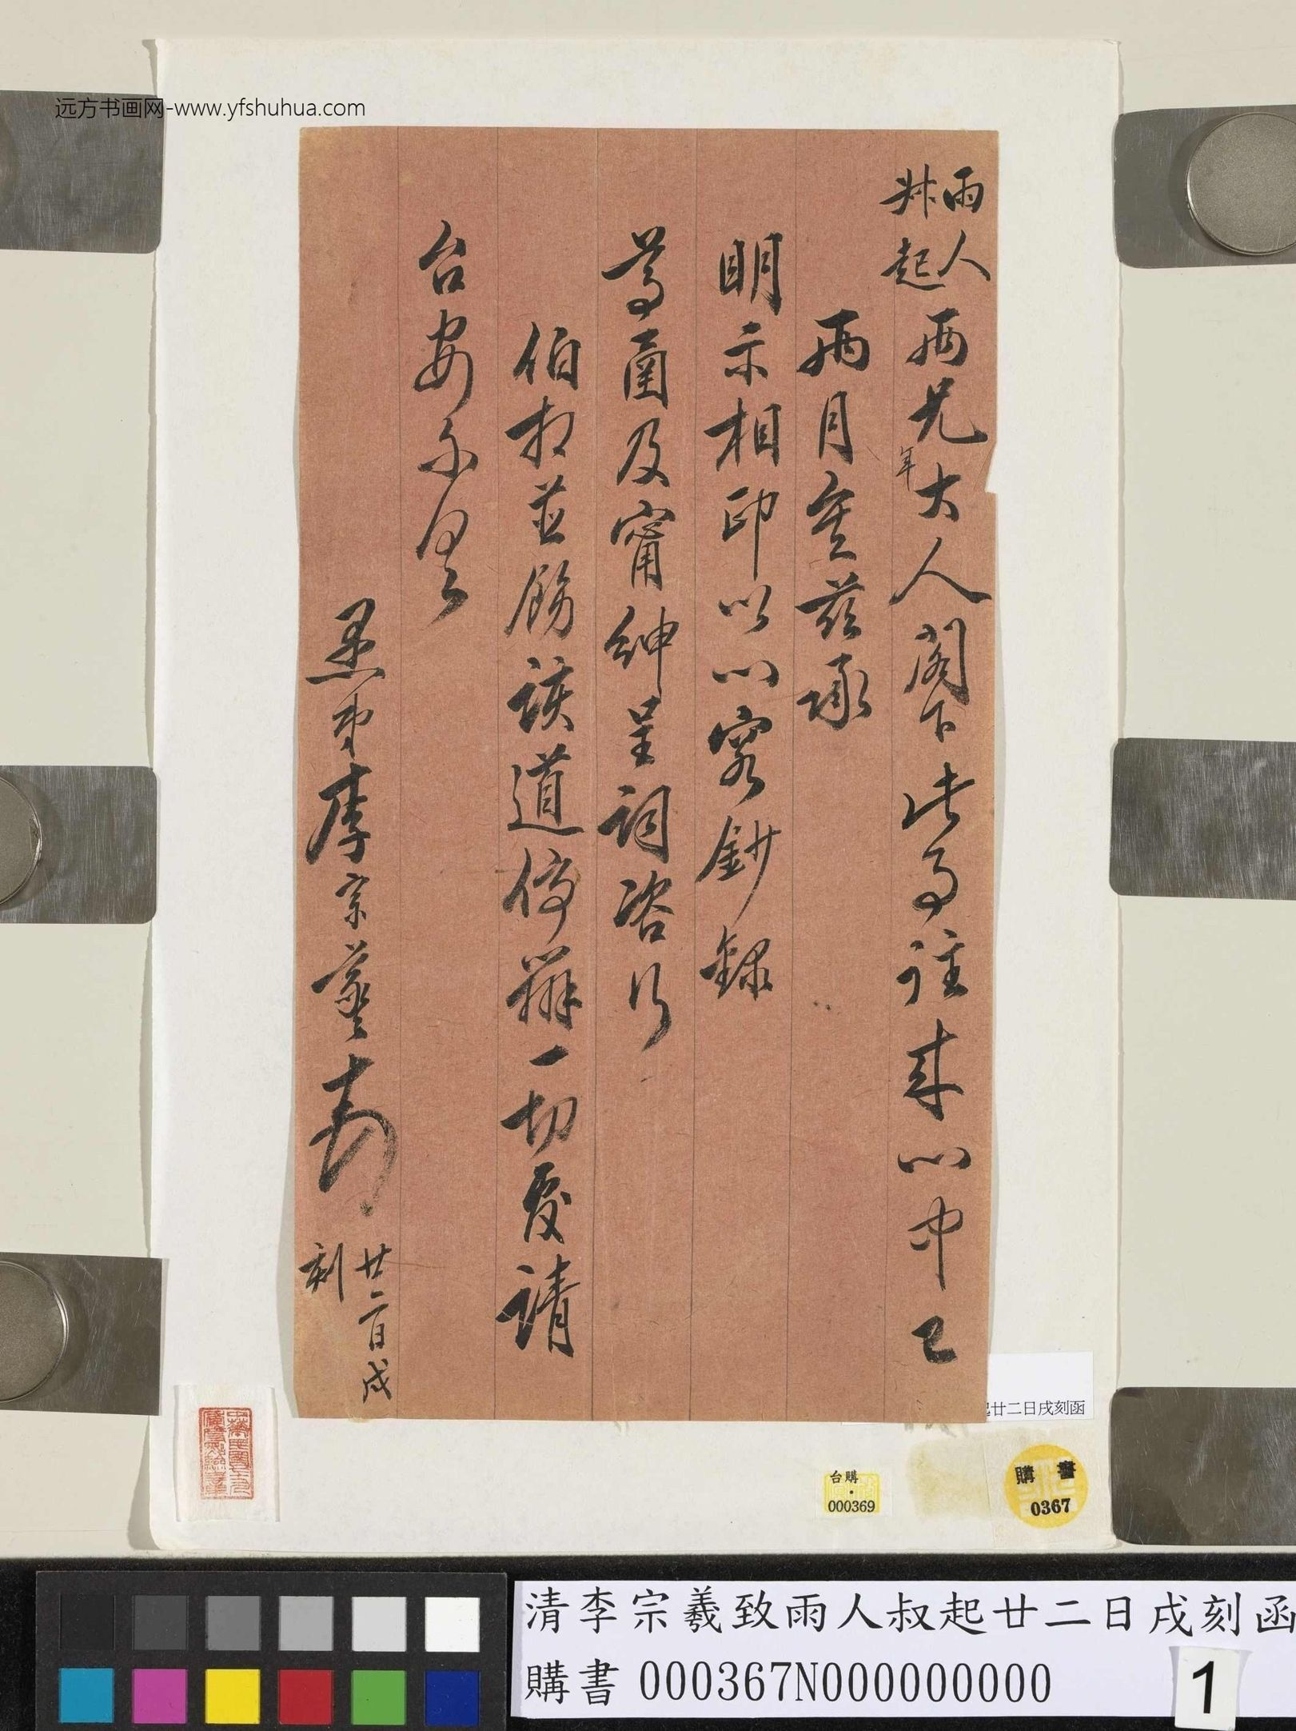 远方书画网-www.yfshuhua.com
雨人
叔起
两兄年大人阁下此事往来心中已
两月矣兹承
明示相印以心容鈔錄
尊圅及甯紳呈詞咨行
伯相並飭該道停辦一切复請
台安不具
愚弟李宗羲頓
廿二日戌
刻
起廿二日戌刻函
台購
000369
購書
0367
清李宗羲致雨人叔起廿二日戌刻函
購書 000367N000000000
1